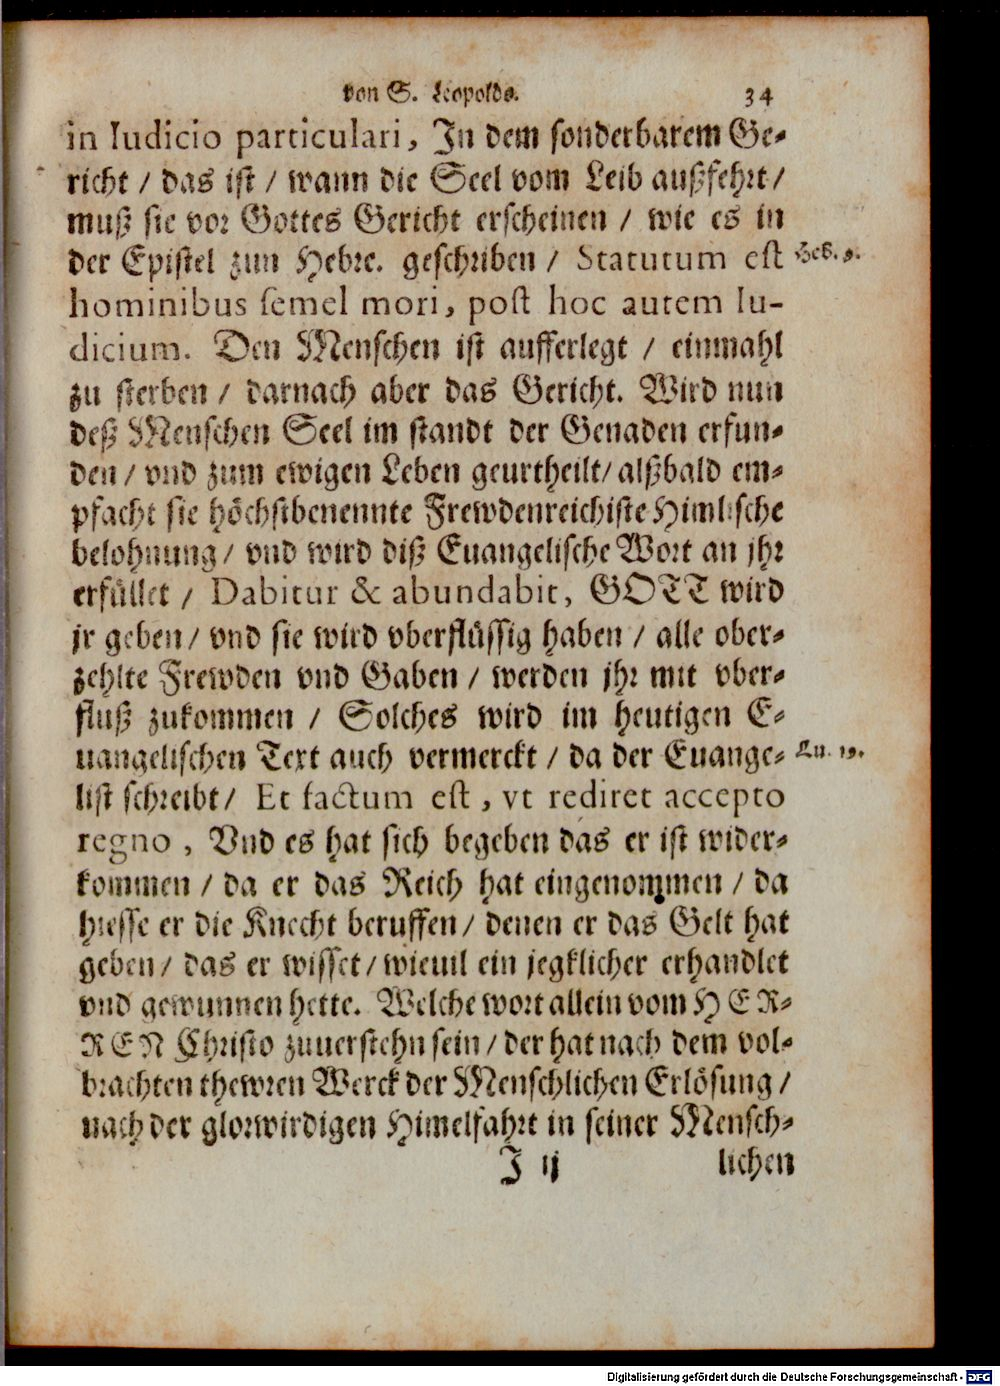 von S. Leopoldo. 34
in Iudicio particulari, In dem sonderbarem Ge-
richt / das ist / wann die Seel vom Leib außfehrt /
muß sie vor Gottes Gericht erscheinen / wie es in
der Epistel zun Hebre. geschriben / Statutum est Heb. 9.
hominibus semel mori, post hoc autem Iu-
dicium. Den Menschen ist aufferlegt / einmahl
zu sterben / darnach aber das Gericht. Wird nun
deß Menschen Seel im standt der Genaden erfun-
den / vnd zum ewigen Leben geurtheilt / alßbald em-
pfacht sie höchstbenennte Frewdenreichiste Himlische
belohnung / vnd wird diß Euangelische Wort an jhr
erfüllet / Dabitur & abundabit, GOTT wird
jr geben / vnd sie wird vberflüssig haben / alle ober-
zehlte Frewden vnd Gaben / werden jhr mit vber-
fluß zukommen / Solches wird im heutigen E-
uangelischen Text auch vermerckt / da der Euange- Lu. 19.
list schreibt / Et factum est, vt rediret accepto
regno, Vnd es hat sich begeben das er ist wider-
kommen / da er das Reich hat eingenommen / da
hiesse er die Knecht beruffen / denen er das Gelt hat
geben / das er wisset / wieuil ein jegklicher erhandlet
vnd gewunnen hette. Welche wort allein vom HER-
REN Christo zuuerstehn sein / der hat nach dem vol-
brachten thewren Werck der Menschlichen Erlösung /
nach der glorwirdigen Himelfahrt in seiner Mensch-
I ij lichen
Digitalisierung gefördert durch die Deutsche Forschungsgemeinschaft - DFG